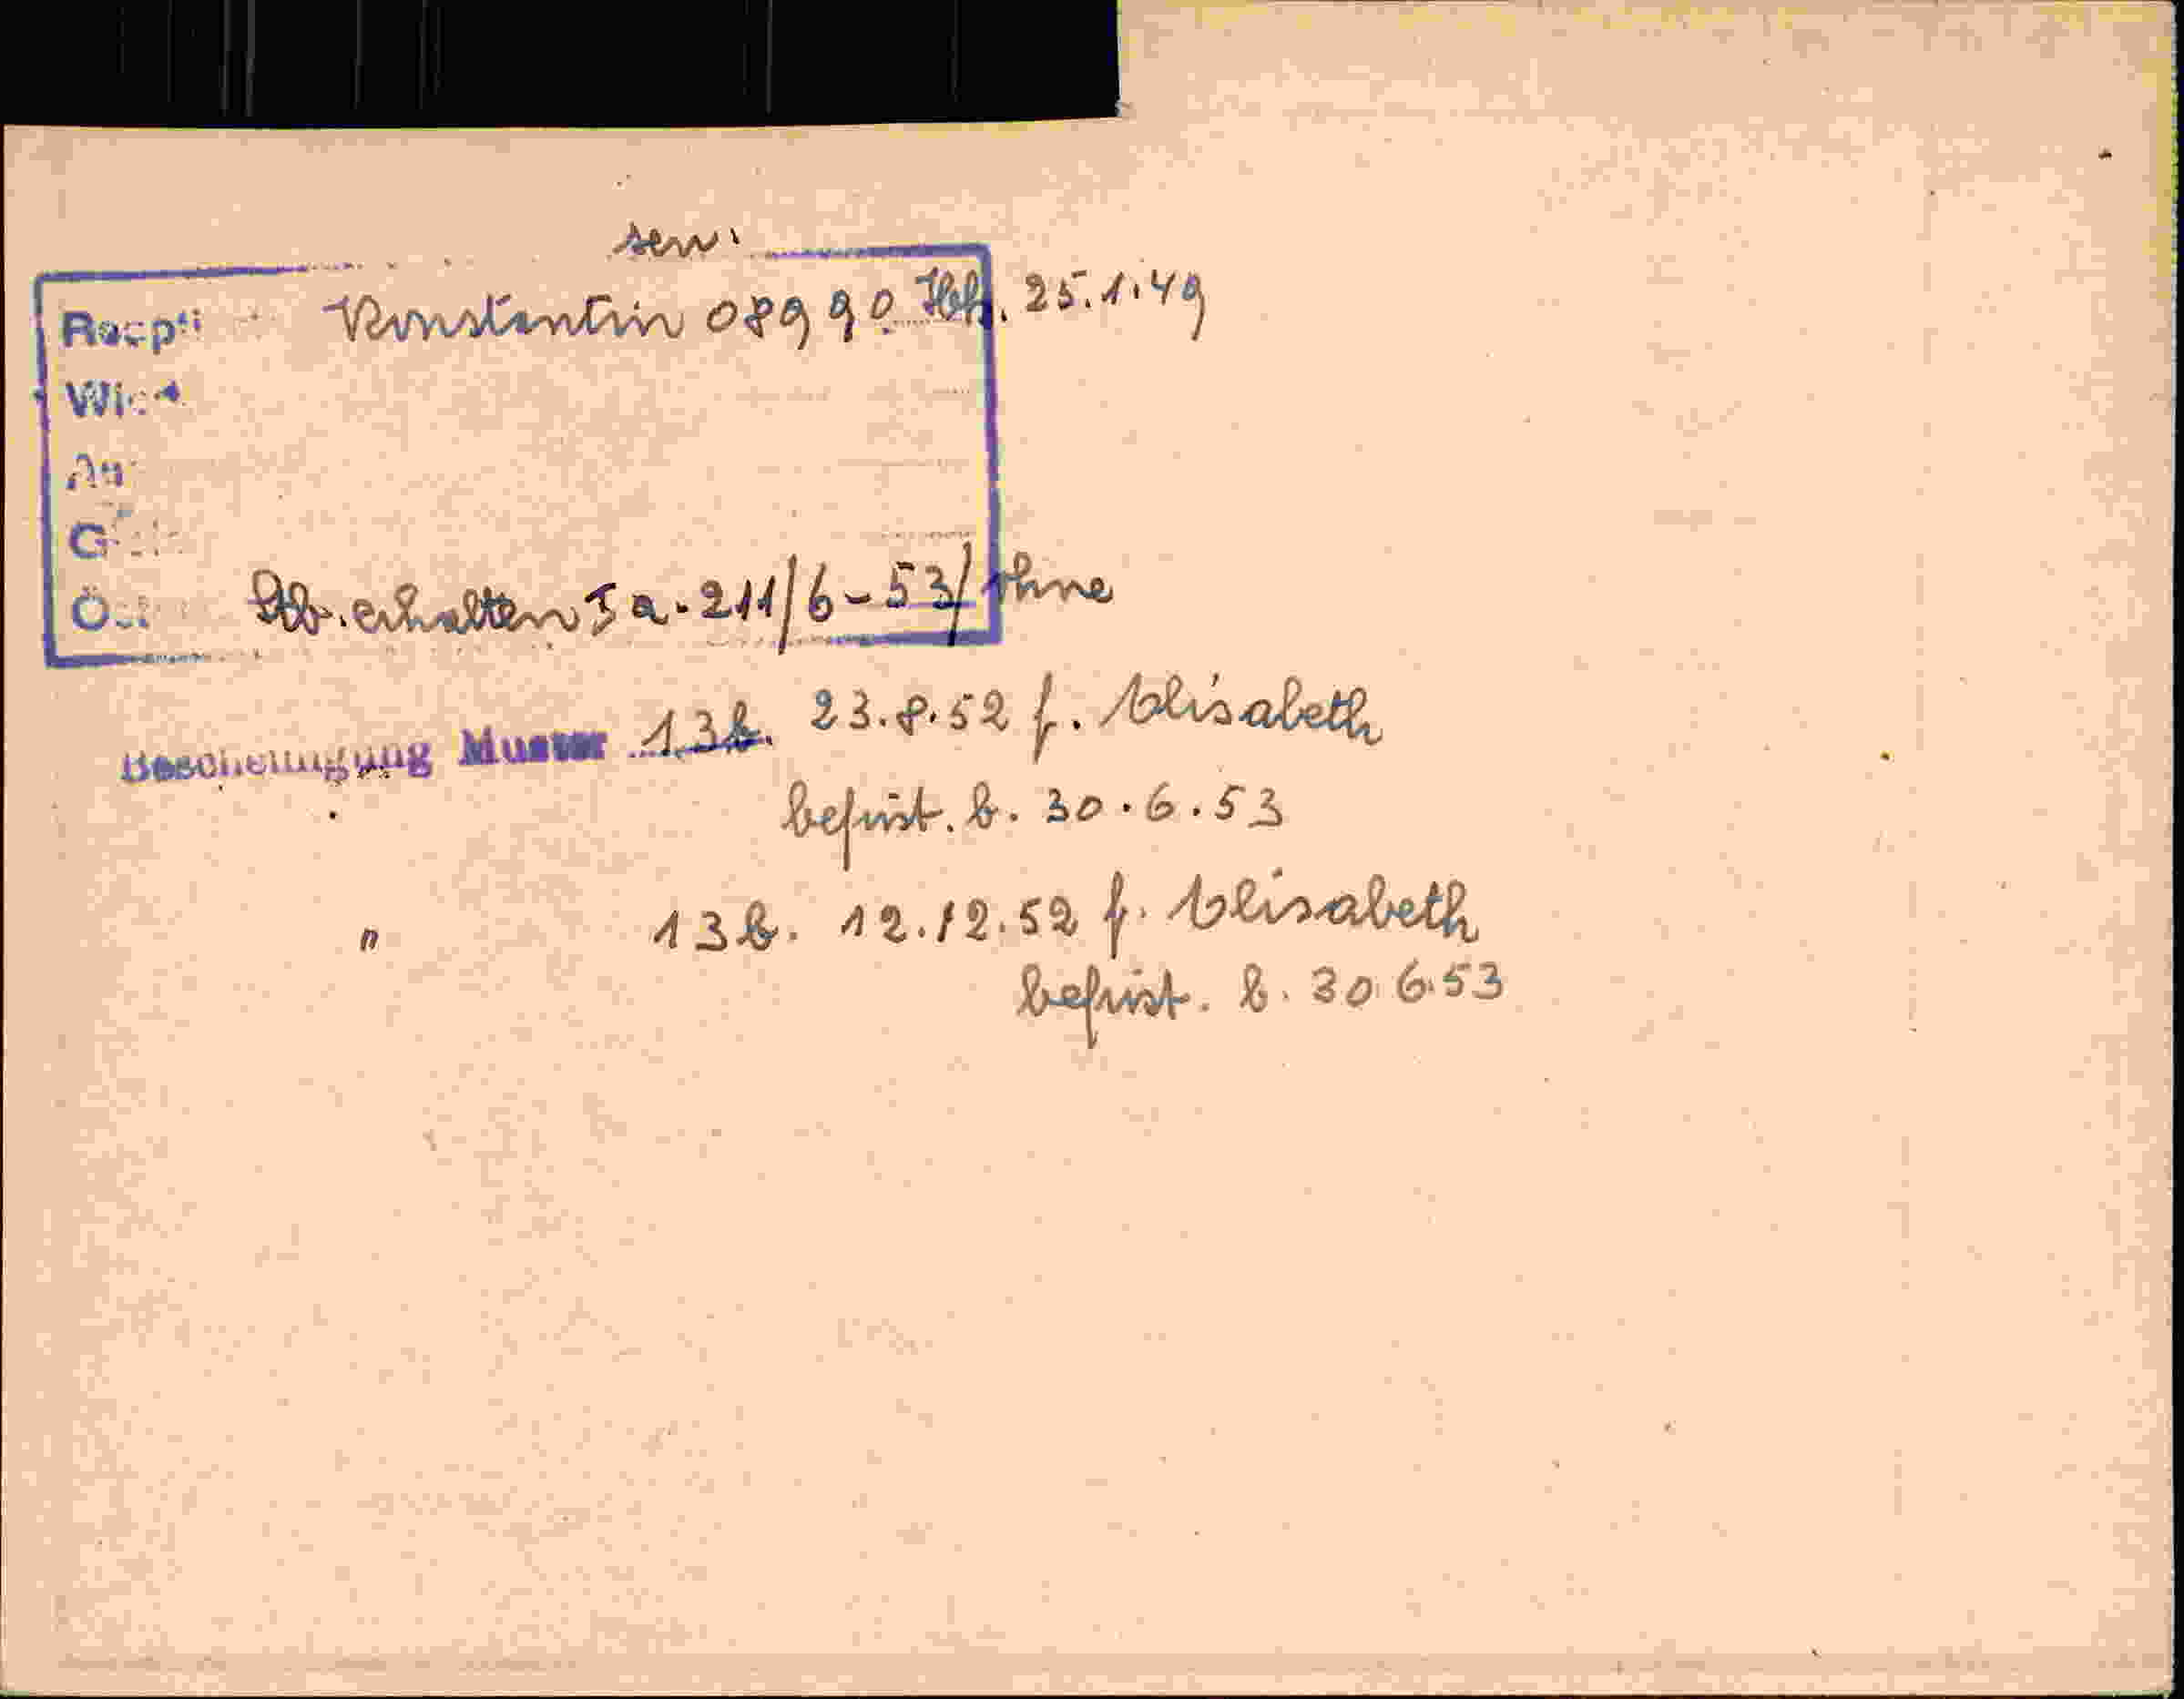 sen.
Konstantin 08990 Hbf. 25.1.49
Stb. erhalten I a - 211/6 - 53/ Ohne
Bescheinigung Muster 13b. 23.8.52 f. Elisabeth
befrist. b. 30.6.53
" 13b. 12.12.52 f. Elisabeth
befrist. b. 30.6.53